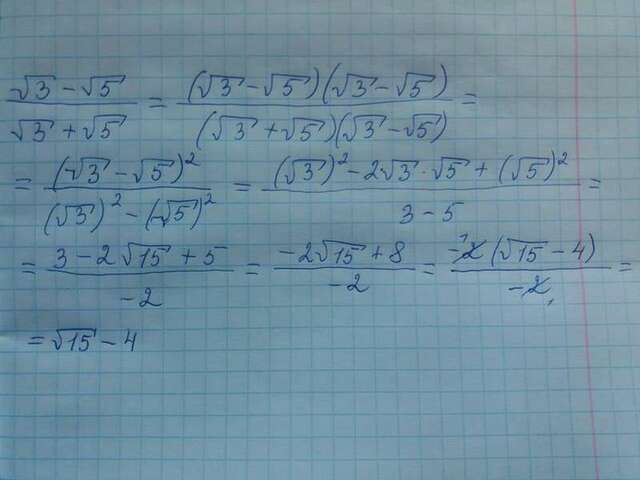 (√3 − √5)/(√3 + √5) = ((√3 − √5)(√3 − √5))/((√3 + √5)(√3 − √5)) =
= (√3 − √5)²/((√3)² − (√5)²) = ((√3)² − 2√3 · √5 + (√5)²)/(3 − 5) =
= (3 − 2√15 + 5)/(−2) = (−2√15 + 8)/(−2) = (−2(√15 − 4))/(−2) =
= √15 − 4